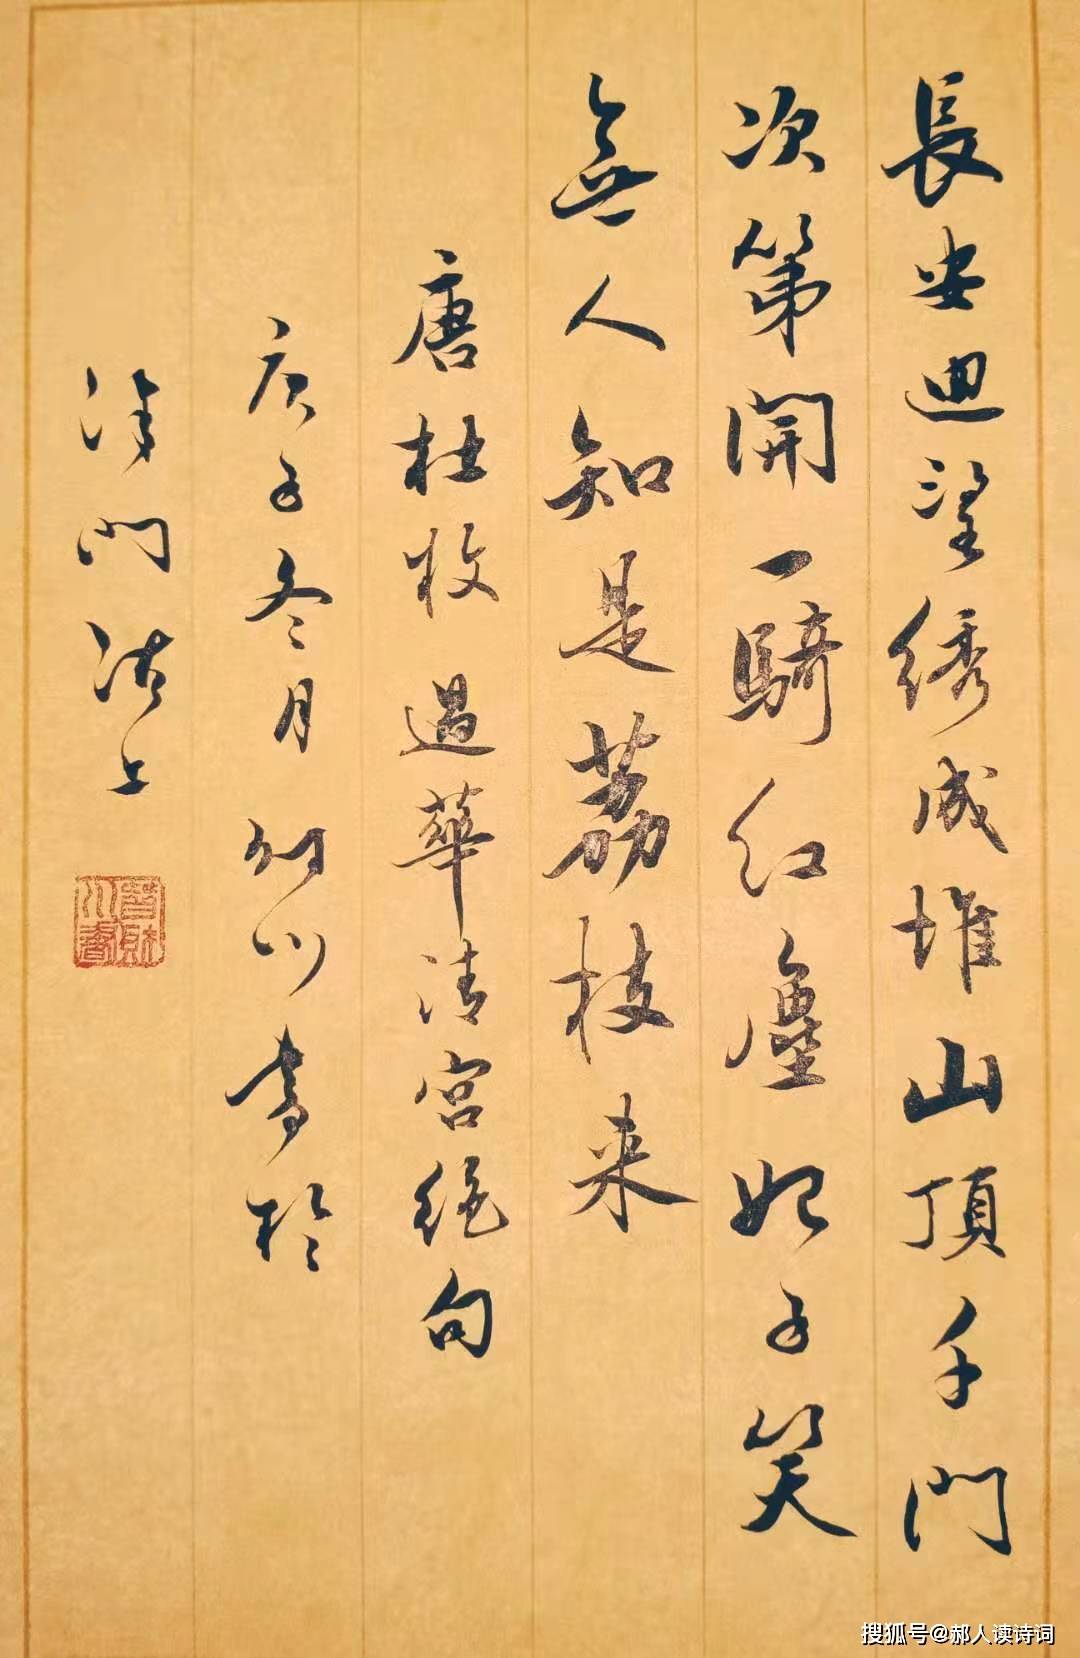 長安迴望绣成堆山頂千門
次第開一騎红塵妃子笑
無人知是荔枝来
唐杜牧過華清宫绝句
庚子冬月川書於
津門沽上
搜狐号@郝人读诗词